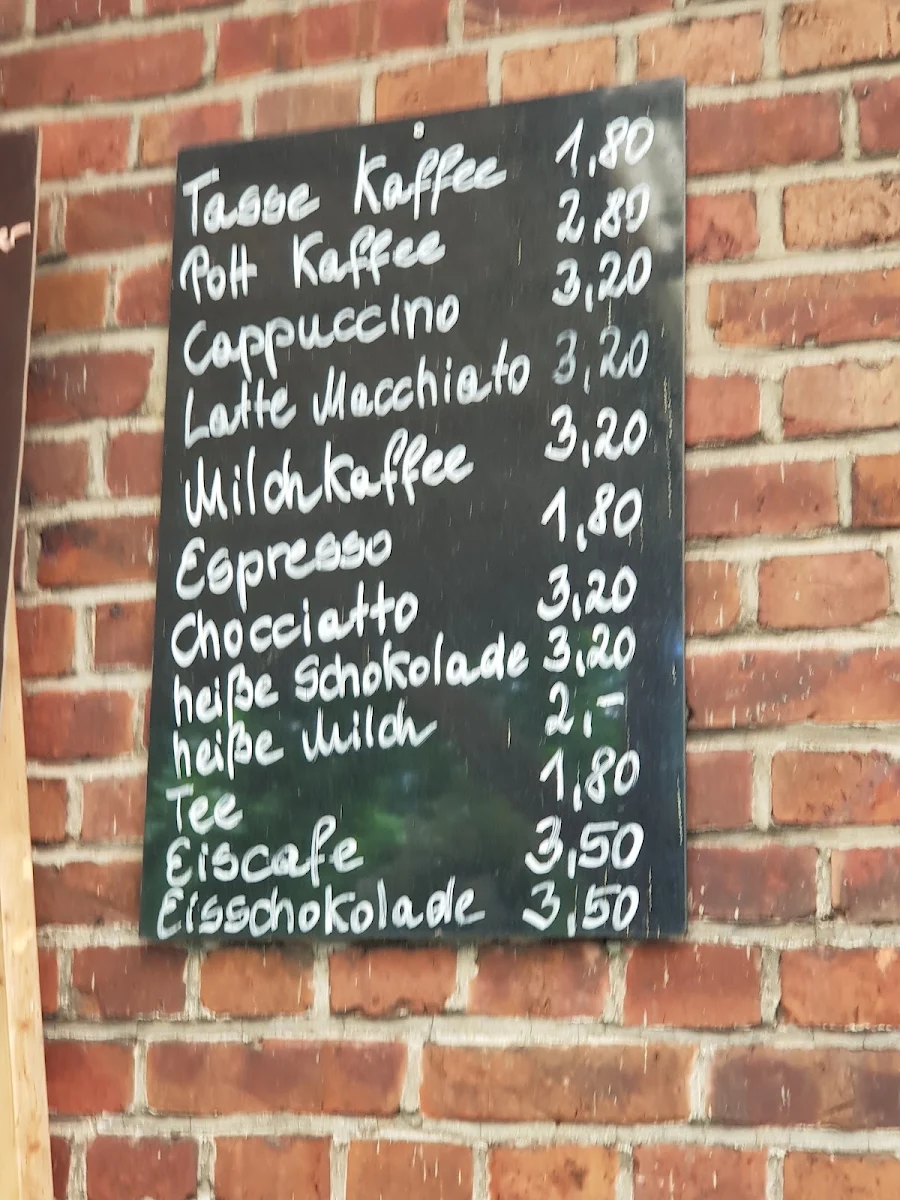 Tasse Kaffee 1,80
Pott Kaffee 2,80
Cappuccino 3,20
Latte Macchiato 3,20
Milchkaffee 3,20
Espresso 1,80
Chocciatto 3,20
heiße Schokolade 3,20
heiße Milch 2,-
Tee 1,80
Eiscafe 3,50
Eisschokolade 3,50